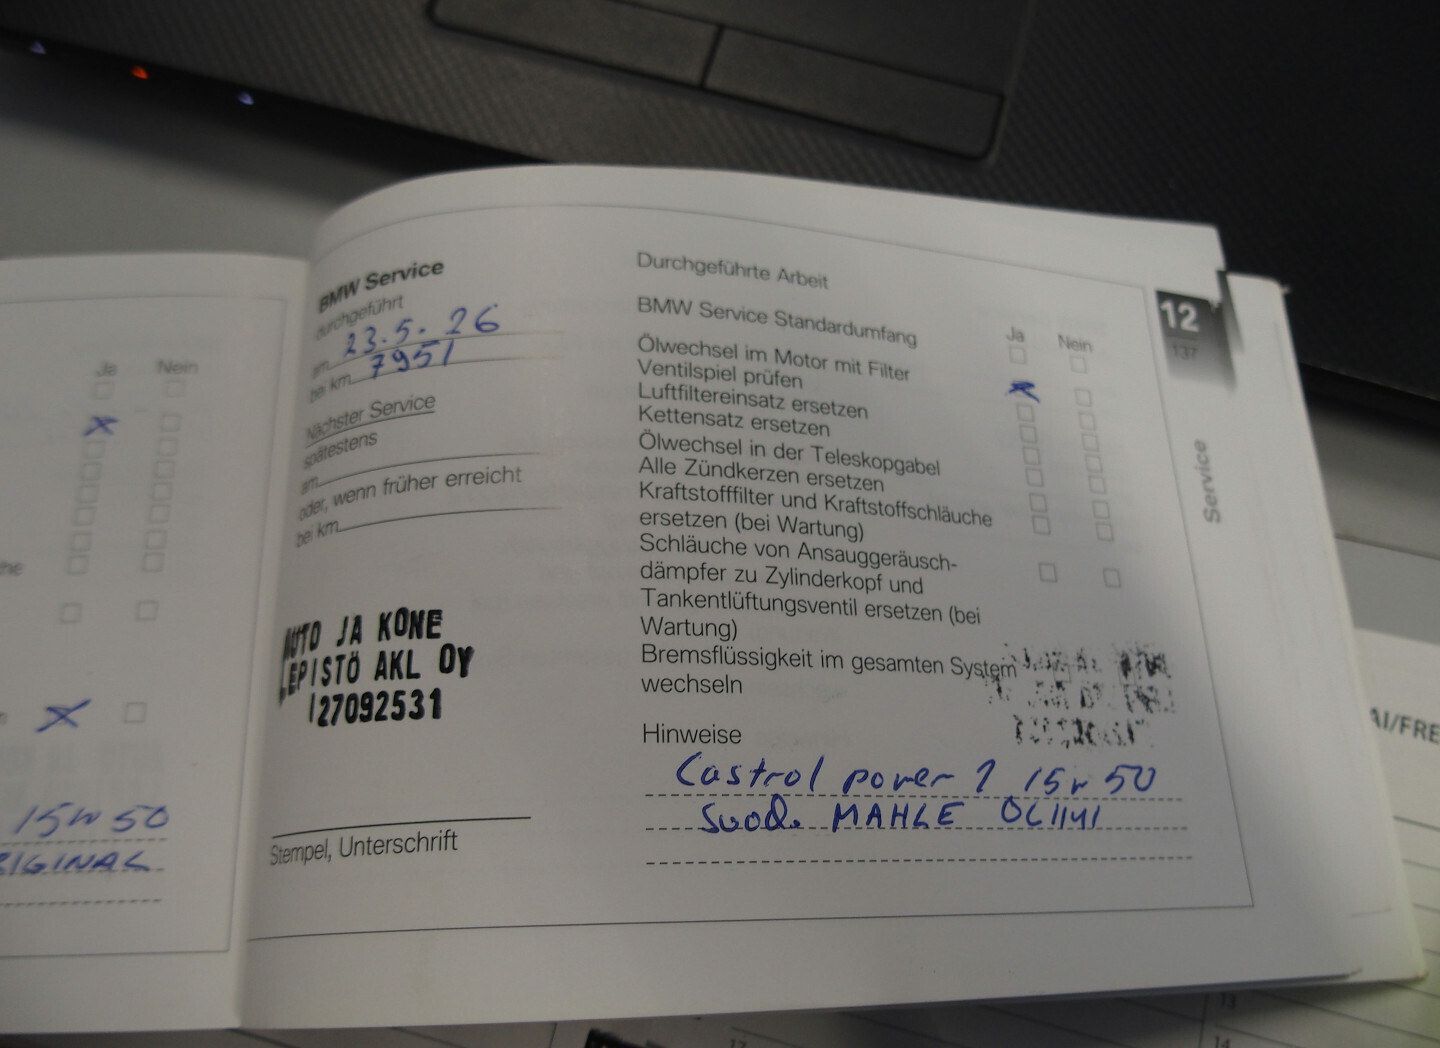 Ja Nein
he
15w50
BMW Service
durchgeführt
am 23.5.26
bei km 7951
Nächster Service
spätestens
am
oder, wenn früher erreicht
bei km
AUTO JA KONE
LEPISTÖ AKL OY
127092531
Stempel, Unterschrift
Durchgeführte Arbeit
BMW Service Standardumfang
Ja Nein
Ölwechsel im Motor mit Filter
Ventilspiel prüfen
Luftfiltereinsatz ersetzen
Kettensatz ersetzen
Ölwechsel in der Teleskopgabel
Alle Zündkerzen ersetzen
Kraftstofffilter und Kraftstoffschläuche
ersetzen (bei Wartung)
Schläuche von Ansauggeräusch-
dämpfer zu Zylinderkopf und
Tankentlüftungsventil ersetzen (bei
Wartung)
Bremsflüssigkeit im gesamten System
wechseln
Hinweise
Castrol power 1 15w50
Suod. MAHLE OC1141
12
137
Service
AI/FRE
13
14
17